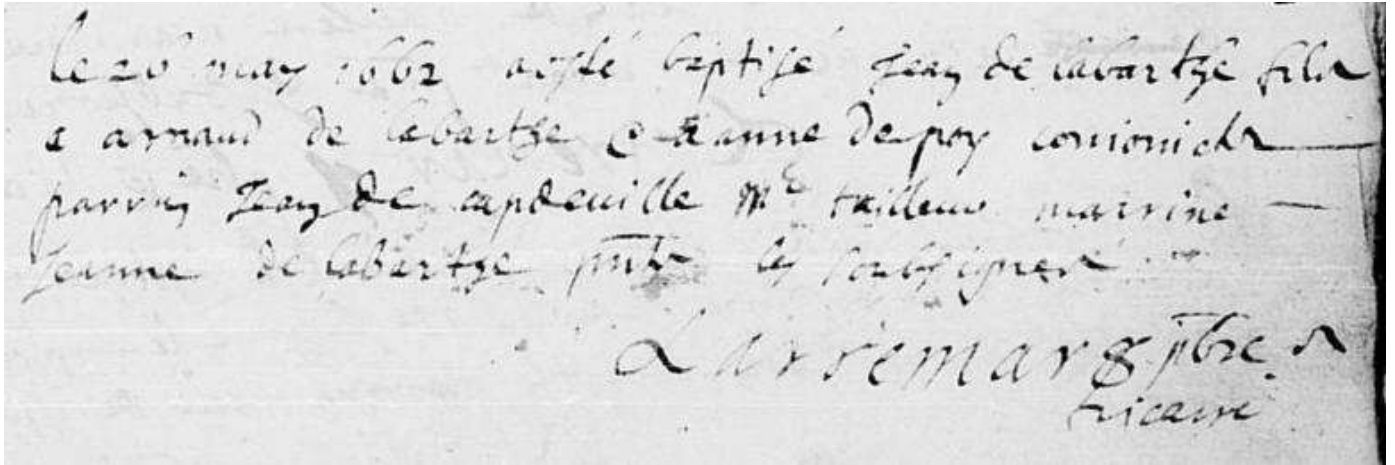 le 26 may 1662 a esté baptisé Jean de labarthe fils
a arnaud de labartge et Jeanne de poy
parrin Jean de capdeuille me tailleur marrine
Jeanne de labartge pnts les soubsignes
Larremar pbre
vicaire